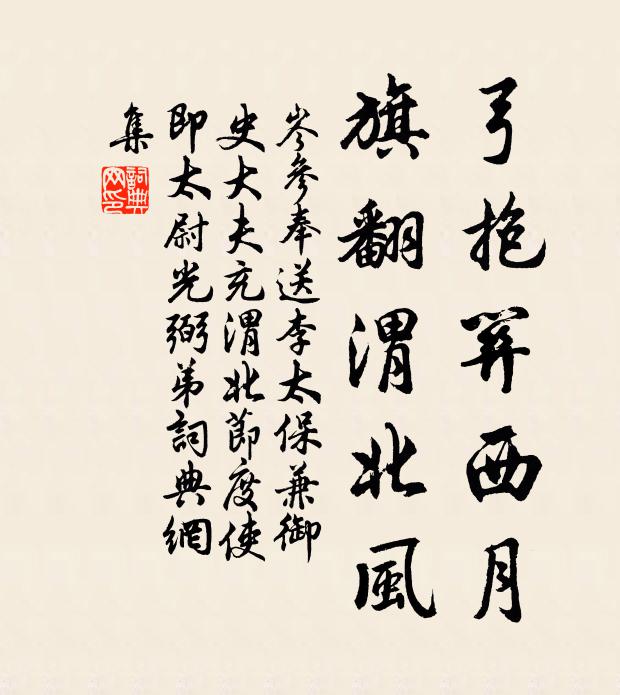 弓抱關西月
旗翻渭北風
岑參奉送李太保兼御
史大夫充渭北節度使
即太尉光弼弟詞典網
集
詞典網印